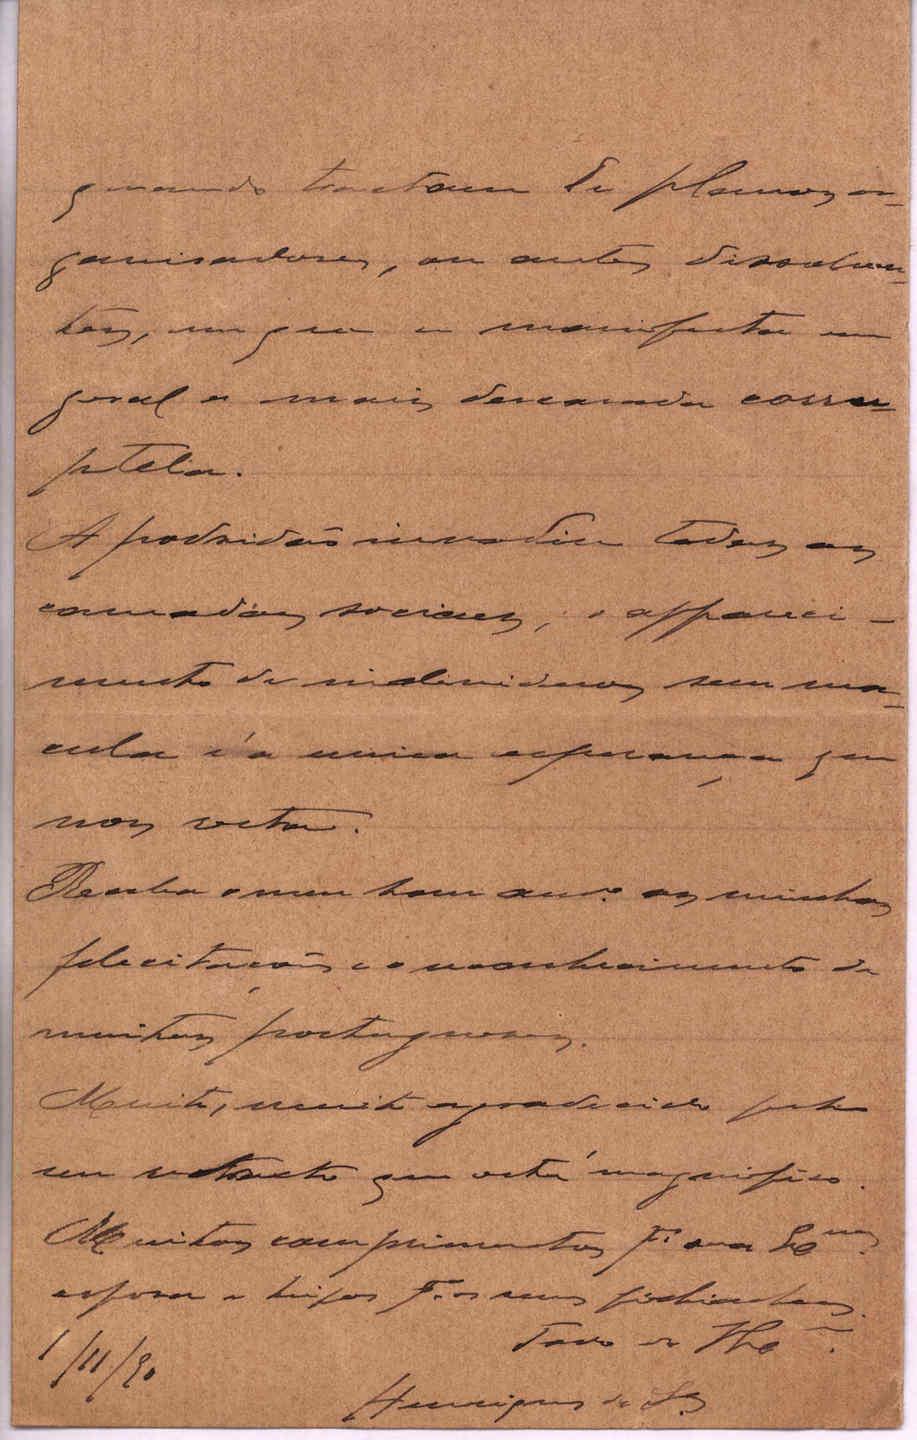 quando tractam de planos or-
ganisadores, ou antes dissolven-
tes, em que se manifesta em
geral a mais descarada corru-
ptela.
A podridão invadiu todas as
camadas sociaes, o appareci-
mento de individuos sem ma-
cula é a unica esperança que
nos resta.
Receba o meu bom am.º as minhas
felicitações e o reconhecimento de
muitos portugueses.
Muito, muito agradecido pelo
seu retracto que está magnifico.
Muitos comprimentos p.ª sua Ex.ma
esposa e beijos p.ª os seus filhinhos.
Todo de V. Ex.ª
1/11/90
Henrique de Sá